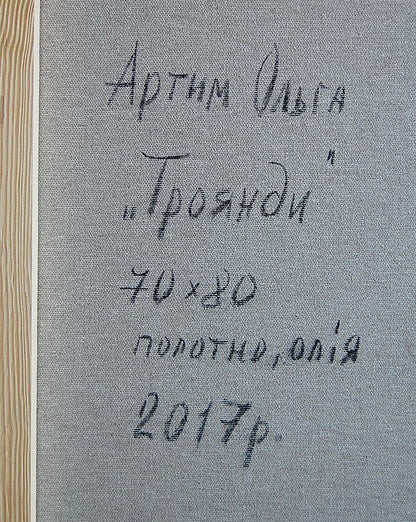 Артим Ольга
„Троянди"
70×80
полотно, олія
2017р.